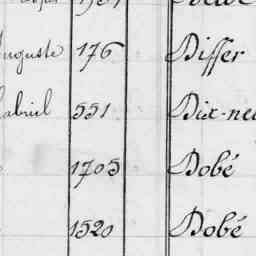 Auguste 176 Differ
Gabriel 551 Dix-neu
1705 Dobé
1520 Dobé